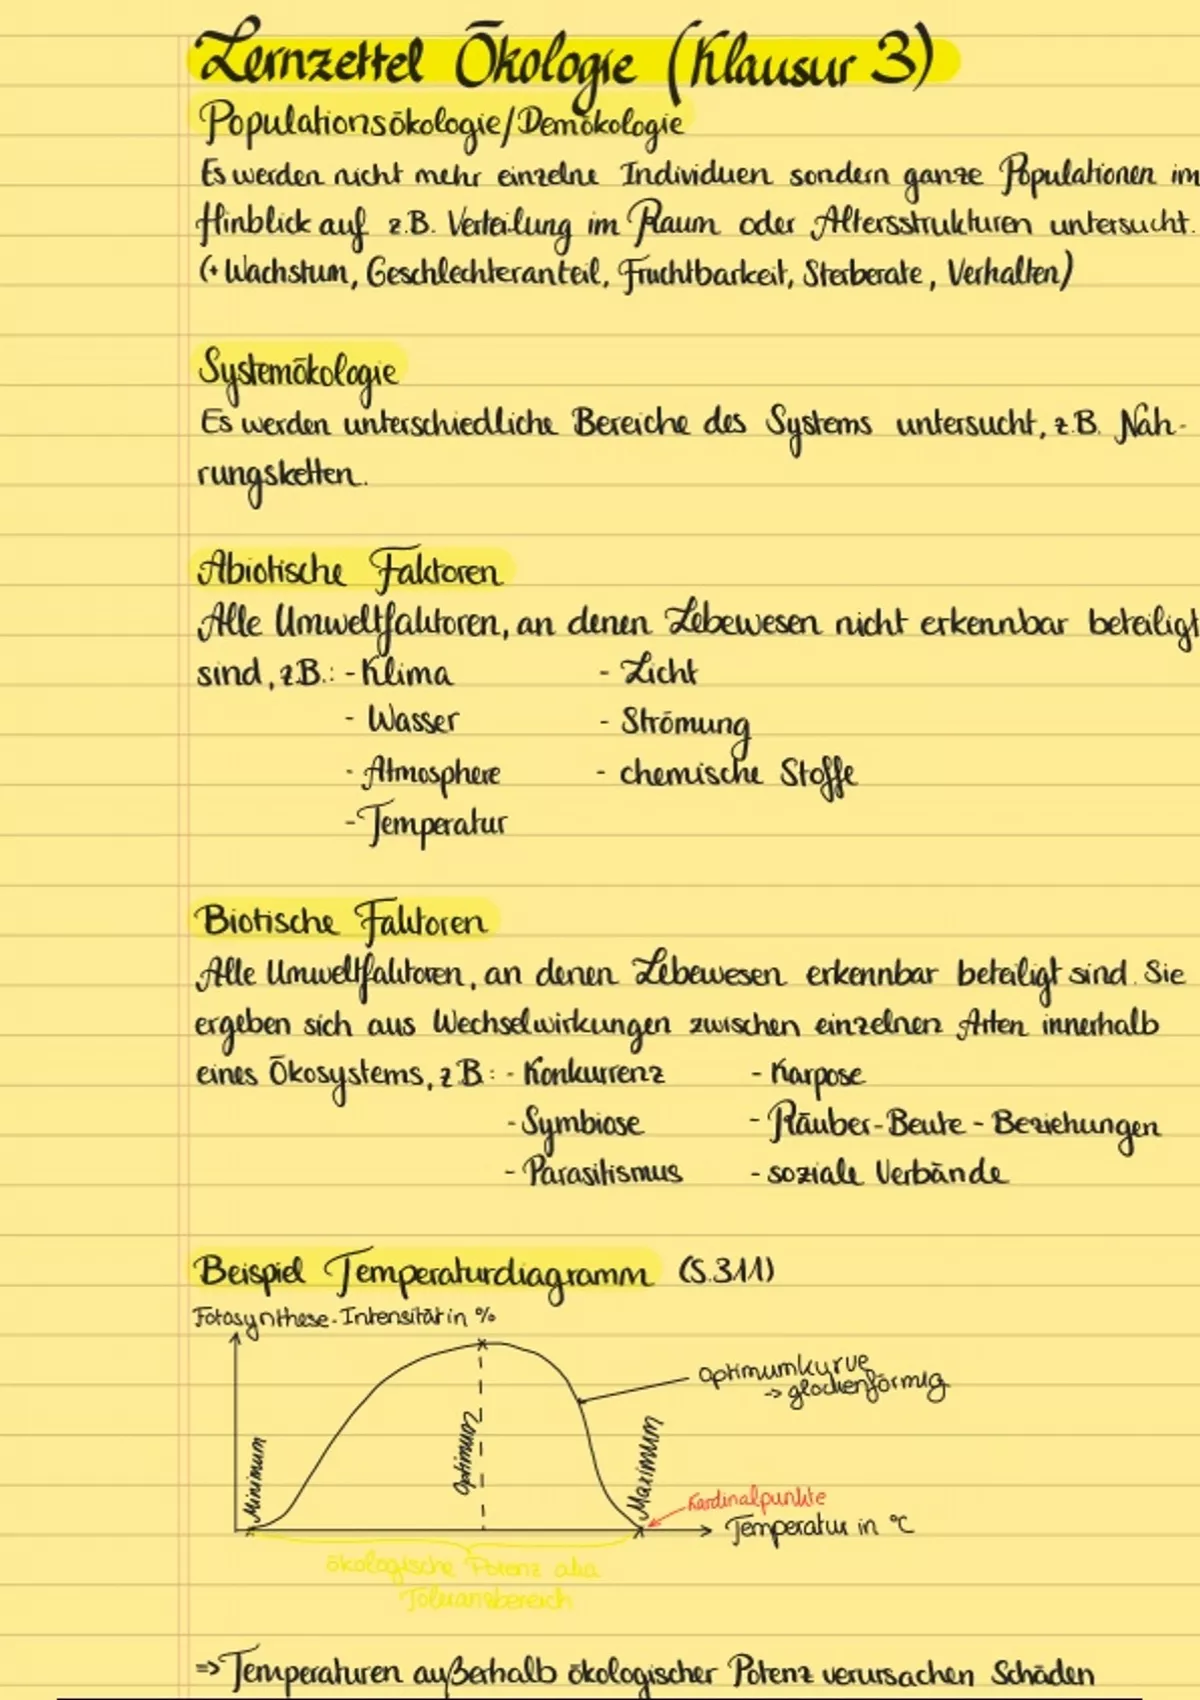 Lernzettel Ökologie (Klausur 3)
Populationsökologie/Demökologie
Es werden nicht mehr einzelne Individuen sondern ganze Populationen im
Hinblick auf z.B. Verteilung im Raum oder Altersstrukturen untersucht.
(+ Wachstum, Geschlechteranteil, Fruchtbarkeit, Sterberate, Verhalten)
Systemökologie
Es werden unterschiedliche Bereiche des Systems untersucht, z.B. Nah-
rungsketten.
Abiotische Faktoren
Alle Umweltfaktoren, an denen Lebewesen nicht erkennbar beteiligt
sind, z.B.: - Klima - Licht
- Wasser - Strömung
- Atmosphere - chemische Stoffe
- Temperatur
Biotische Faktoren
Alle Umweltfaktoren, an denen Lebewesen erkennbar beteiligt sind. Sie
ergeben sich aus Wechselwirkungen zwischen einzelnen Arten innerhalb
eines Ökosystems, z.B.: - Konkurrenz - Karpose
- Symbiose - Räuber-Beute-Beziehungen
- Parasitismus - soziale Verbände
Beispiel Temperaturdiagramm (S.311)
Fotosynthese-Intensität in %
Optimumkurve
→ glockenförmig
Minimum
Optimum
Maximum
Kardinalpunkte
Temperatur in °C
ökologische Potenz aka
Toleranzbereich
⇒ Temperaturen außerhalb ökologischer Potenz verursachen Schäden